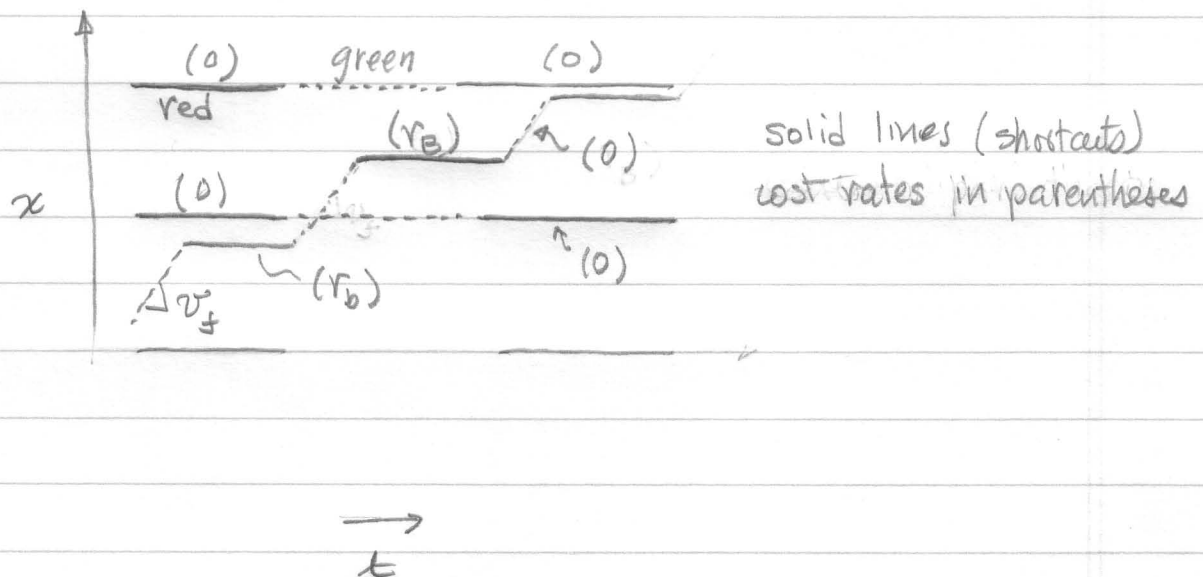 (0) green (0)
red
(rB) (0)
solid lines (shortcuts)
cost rates in parentheses
x
(0)
(0)
(rb)
vf
t